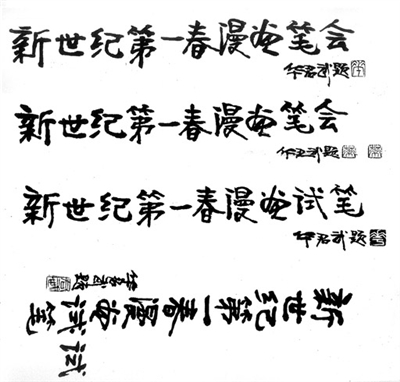 新世纪第一春漫画笔会
华君武题
新世纪第一春漫画笔会
华君武题
新世纪第一春漫画试笔
华君武题
新世纪第一春漫画试笔
试
华君武题